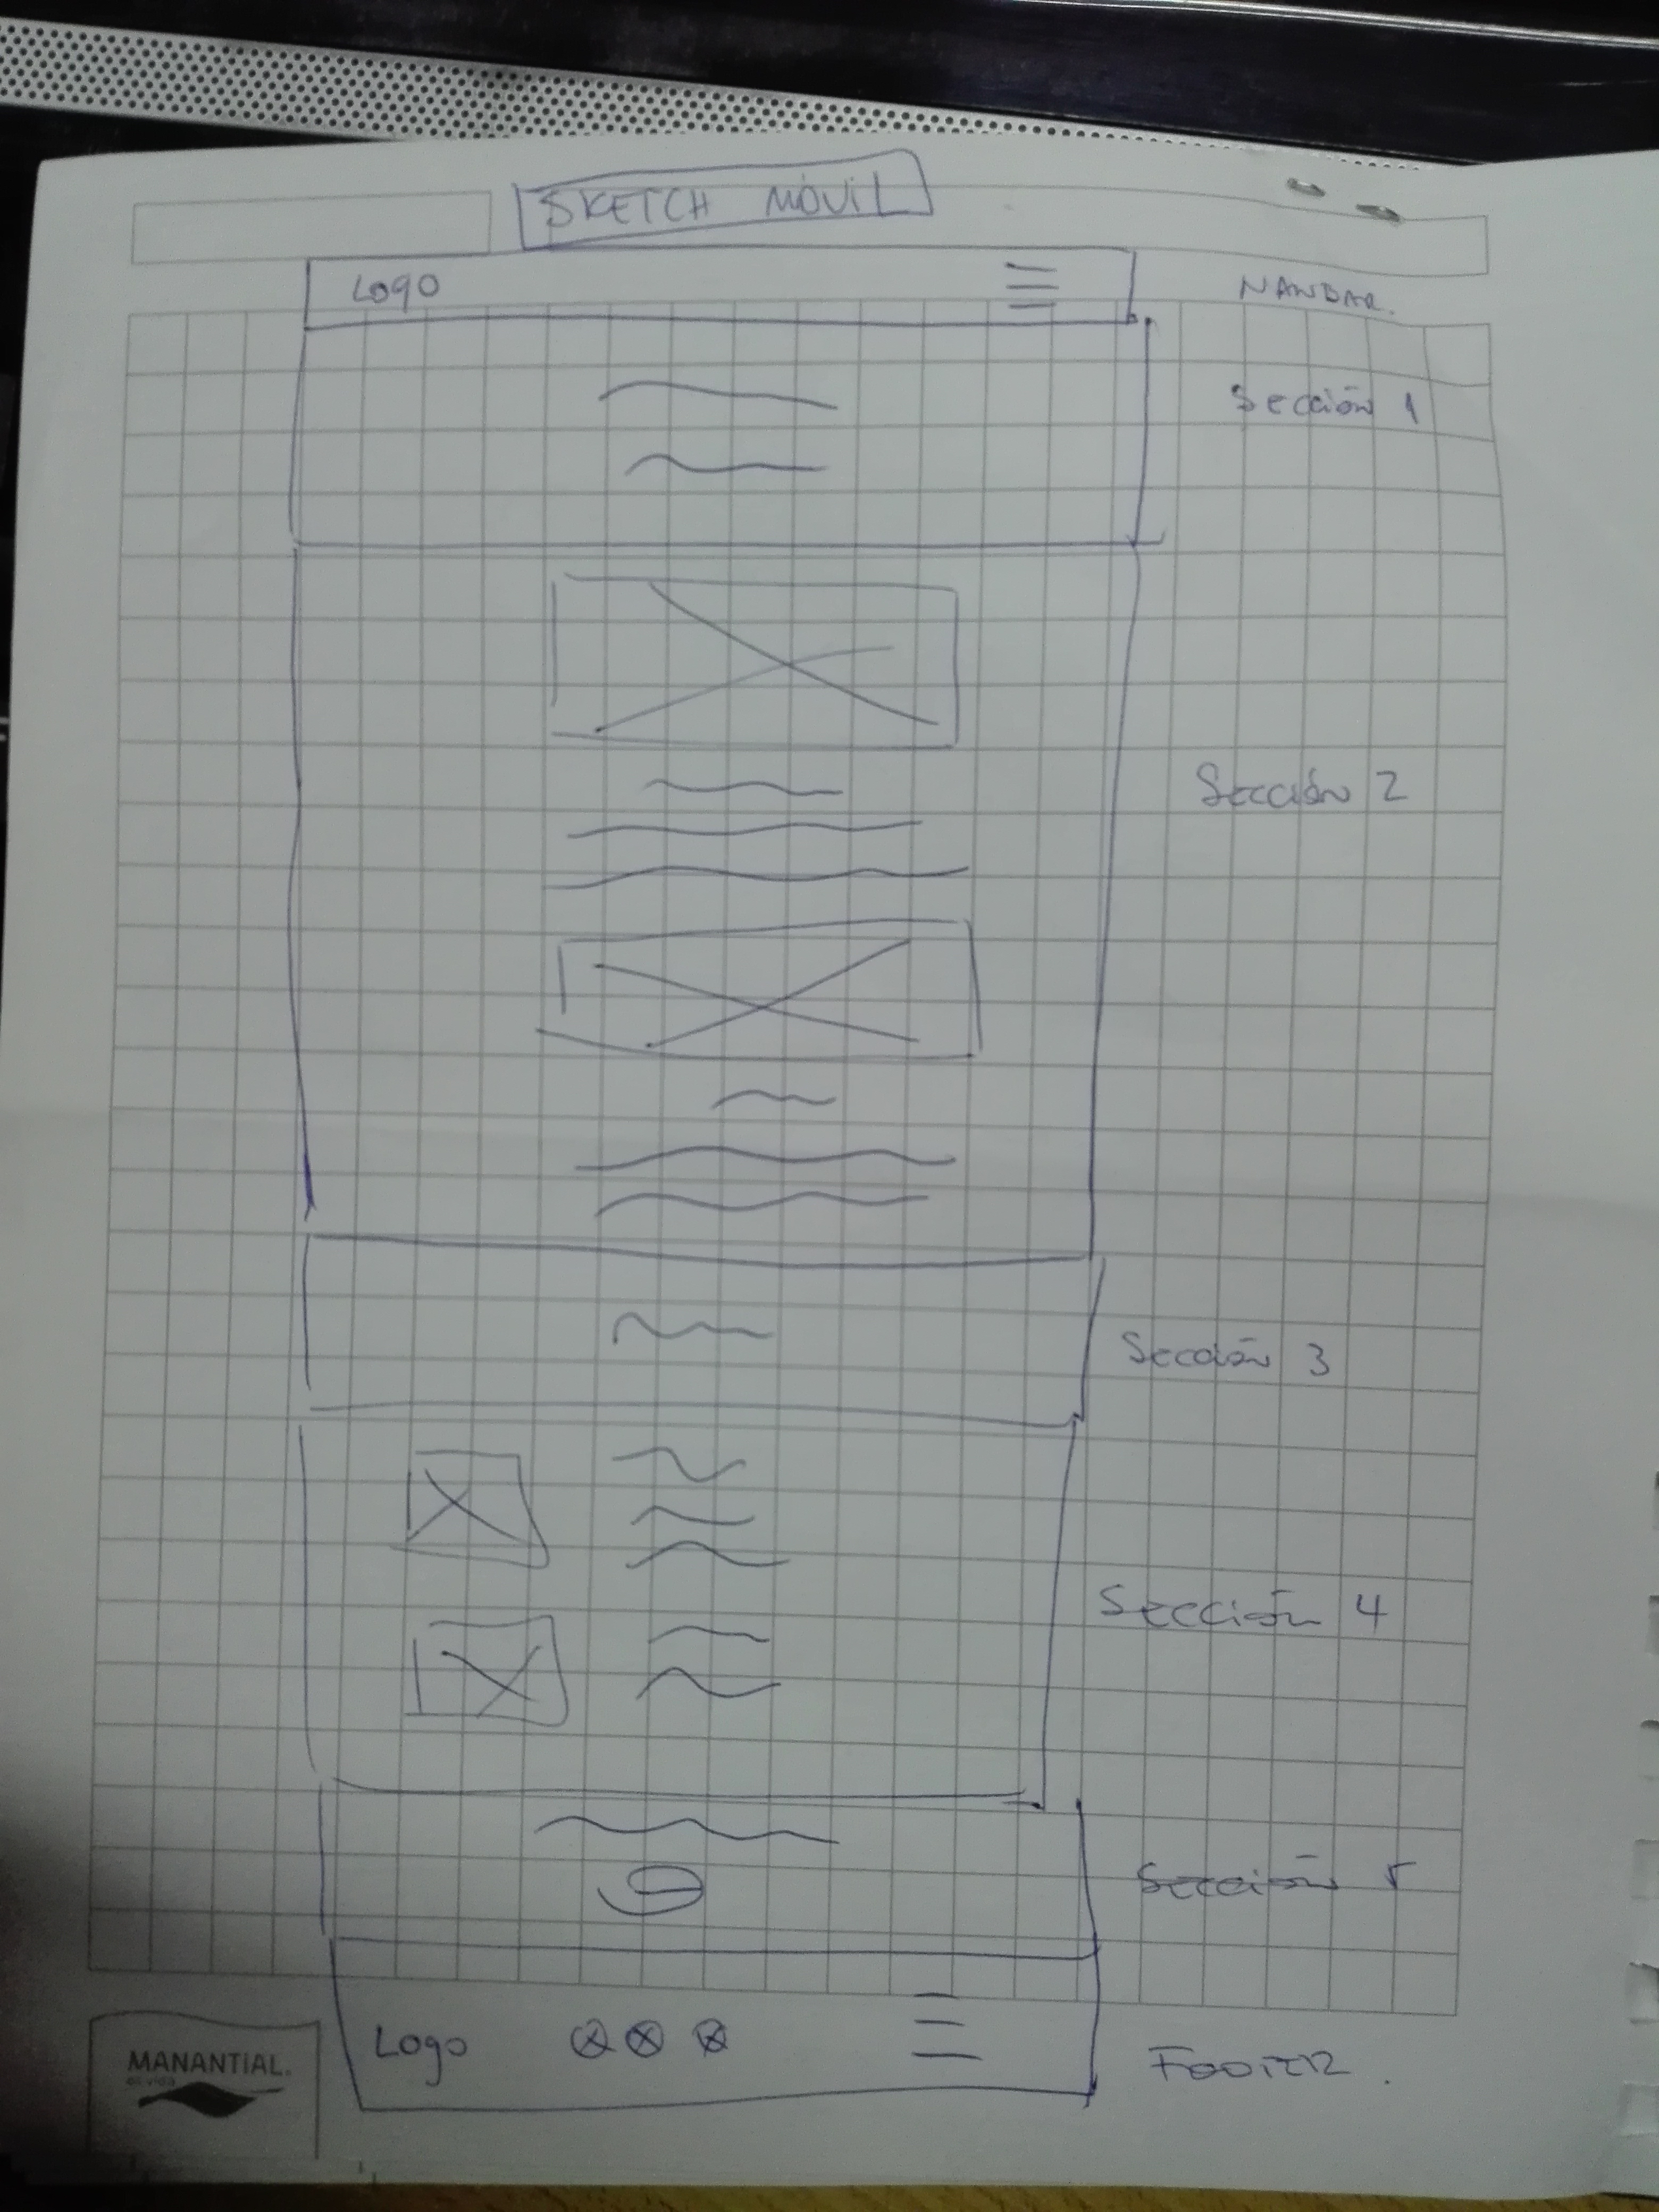 SKETCH MÓVIL
LOGO
NAVBAR.
Sección 1
Sección 2
Sección 3
Sección 4
Sección 5
Logo
FOOTER.
MANANTIAL.
es vida